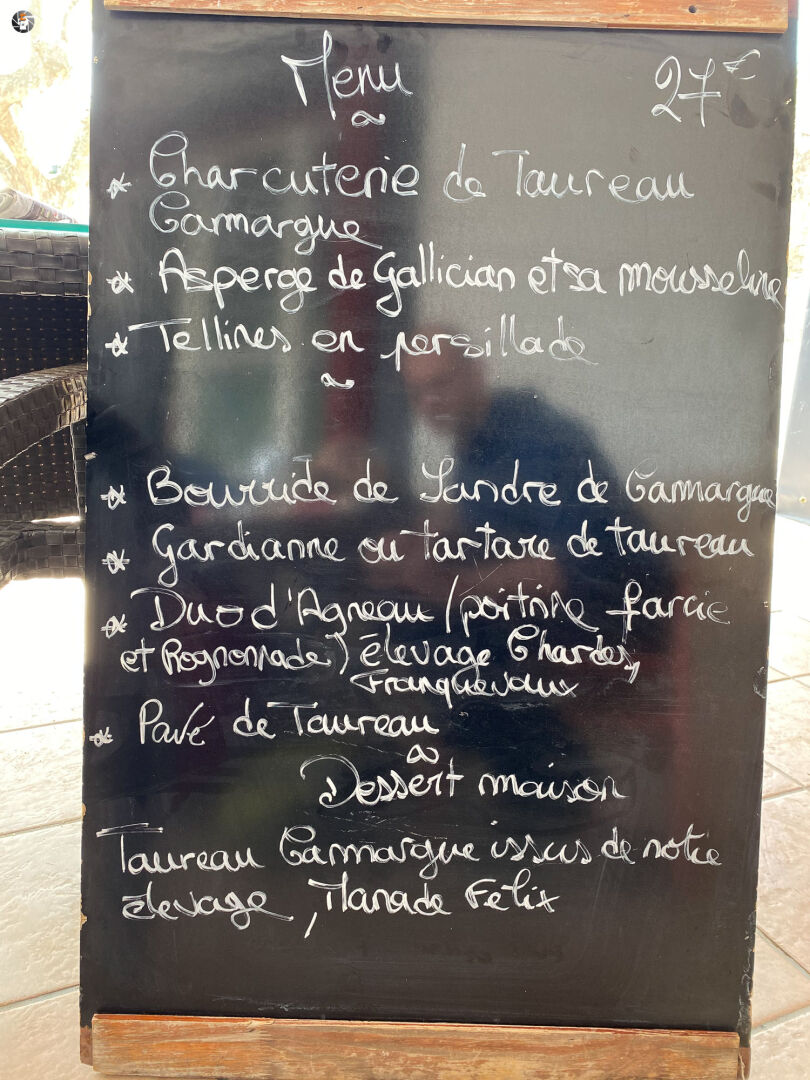 Menu 27€
~
* Charcuterie de Taureau
Camargue
* Asperge de Gallician et sa mousseline
* Tellines en persillade
~
* Bourride de Sandre de Camargue
* Gardianne ou tartare de taureau
* Duo d'Agneau (poitrine farcie
et Rognonnade) élevage Chardes,
Franquevaux
* Pavé de Taureau
~
Dessert maison
Taureau Camargue issus de notre
élevage, Manade Felix